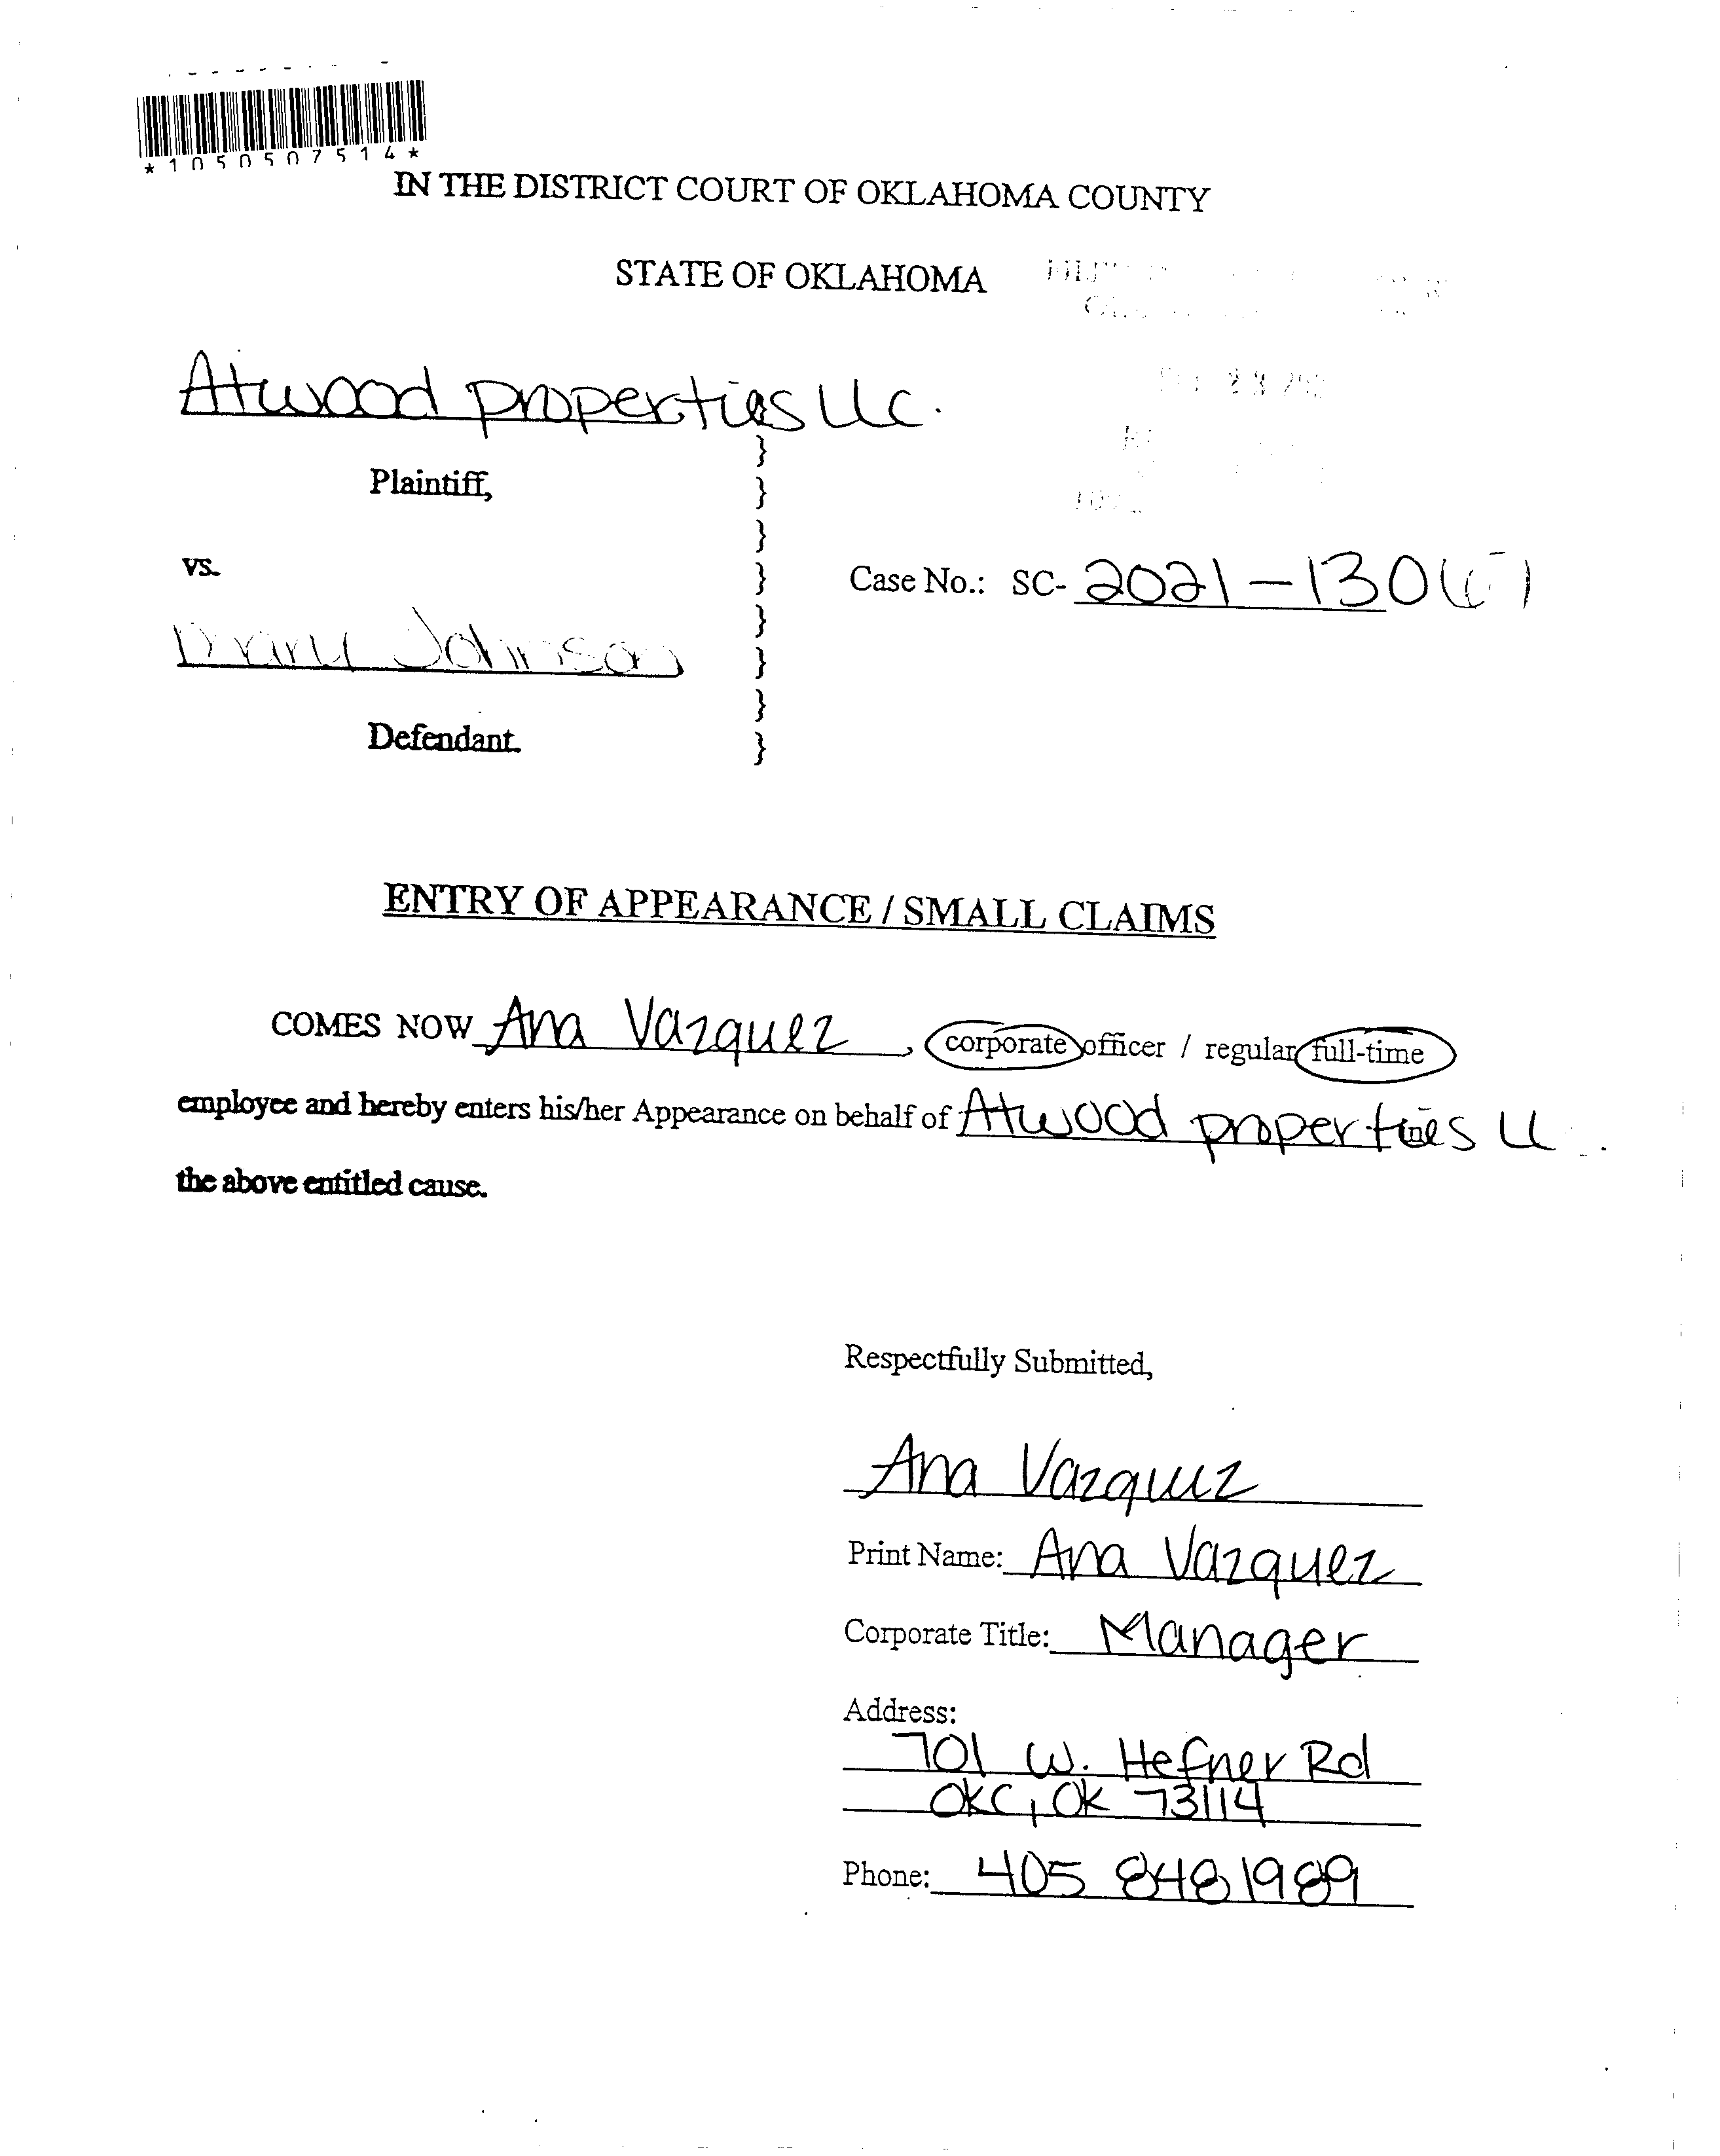 *1050507514*
IN THE DISTRICT COURT OF OKLAHOMA COUNTY
STATE OF OKLAHOMA
Atwood properties llc.
Plaintiff,
vs.
Case No.: SC- 2021-130
Johnson
Defendant.
ENTRY OF APPEARANCE / SMALL CLAIMS
COMES NOW Ana Vazquez, corporate officer / regular full-time
employee and hereby enters his/her Appearance on behalf of Atwood properties ll
the above entitled cause.
Respectfully Submitted,
Ana Vazquez
Print Name: Ana Vazquez
Corporate Title: Manager
Address:
701 W. Hefner Rd
OKC, OK 73114
Phone: 405 848 1989